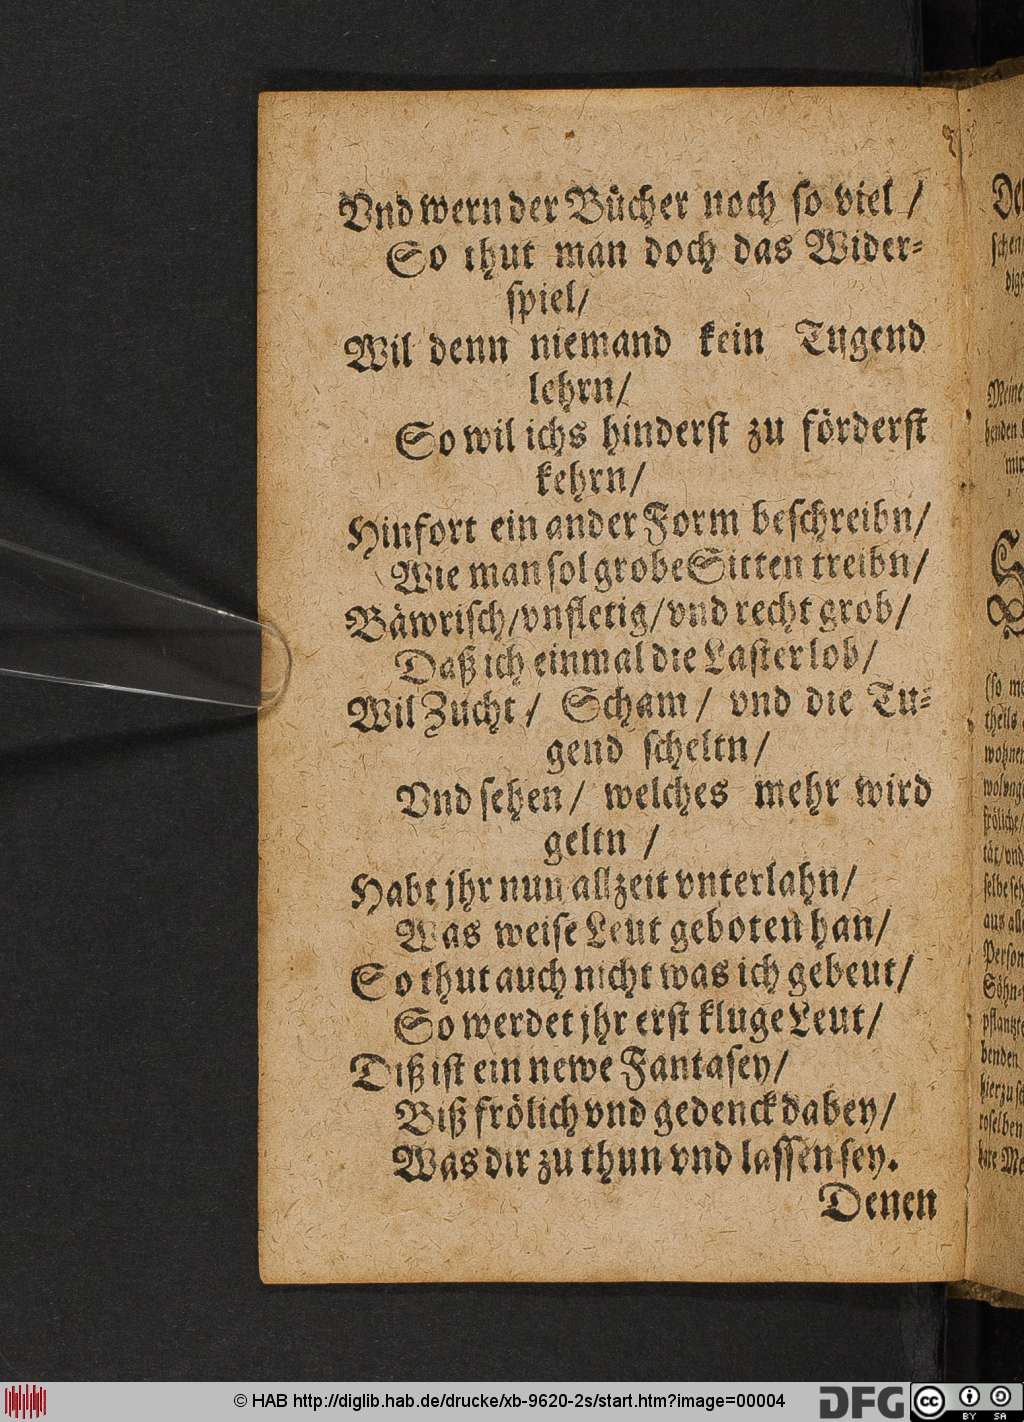 Vnd wern der Bücher noch so viel /
So thut man doch das Wider-
spiel/
Wil denn niemand kein Tugend
lehrn/
So wil ichs hinderst zu förderst
kehrn/
Hinfort ein ander Form beschreibn/
Wie man sol grobe Sitten treibn/
Bäwrisch/vnfletig/vnd recht grob/
Daß ich einmal die Laster lob/
Wil Zucht / Scham / vnd die Tu-
gend scheltn/
Vnd sehen/ welches mehr wird
geltn /
Habt jhr nun allzeit vnterlahn/
Was weise Leut geboten han/
So thut auch nicht was ich gebeut/
So werdet jhr erst kluge Leut/
Diß ist ein newe Fantasey/
Biß frölich vnd gedenck dabey/
Was dir zu thun vnd lassen sey.
Denen
© HAB http://diglib.hab.de/drucke/xb-9620-2s/start.htm?image=00004
DFG
cc BY SA